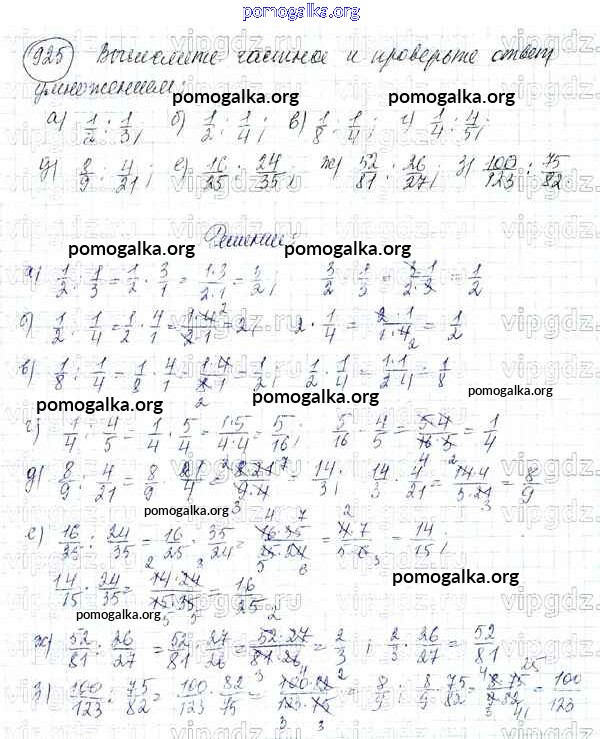 pomogalka.org
925 Вычислите частное и проверьте ответ
умножением:
pomogalka.org pomogalka.org
а) 1/2 : 1/3; б) 1/2 : 1/4; в) 1/8 : 1/4; г) 1/4 : 4/5;
д) 8/9 : 4/21; е) 16/25 : 24/35; ж) 52/81 : 26/27; з) 100/123 : 75/82.
Решение:
pomogalka.org pomogalka.org
а) 1/2 : 1/3 = 1/2 · 3/1 = 1·3/2·1 = 3/2; 3/2 · 1/3 = 3·1/2·3 = 1/2
б) 1/2 : 1/4 = 1/2 · 4/1 = 1·4/2·1 = 2; 2 · 1/4 = 2·1/1·4 = 1/2
в) 1/8 : 1/4 = 1/8 · 4/1 = 1·4/8·1 = 1/2; 1/2 · 1/4 = 1·1/2·4 = 1/8
pomogalka.org pomogalka.org pomogalka.org
г) 1/4 : 4/5 = 1/4 · 5/4 = 1·5/4·4 = 5/16; 5/16 · 4/5 = 5·4/16·5 = 1/4
д) 8/9 : 4/21 = 8/9 · 21/4 = 8·21/9·4 = 14/3; 14/3 · 4/21 = 14·4/3·21 = 8/9
pomogalka.org pomogalka.org
е) 16/25 : 24/35 = 16/25 · 35/24 = 16·35/25·24 = 4·7/5·6 = 14/15;
14/15 · 24/35 = 14·24/15·35 = 16/25
pomogalka.org pomogalka.org
ж) 52/81 : 26/27 = 52/81 · 27/26 = 52·27/81·26 = 2/3; 2/3 · 26/27 = 52/81
з) 100/123 : 75/82 = 100/123 · 82/75 = 100·82/123·75 = 8/9; 8/9 · 75/82 = 8·75/9·82 = 100/123